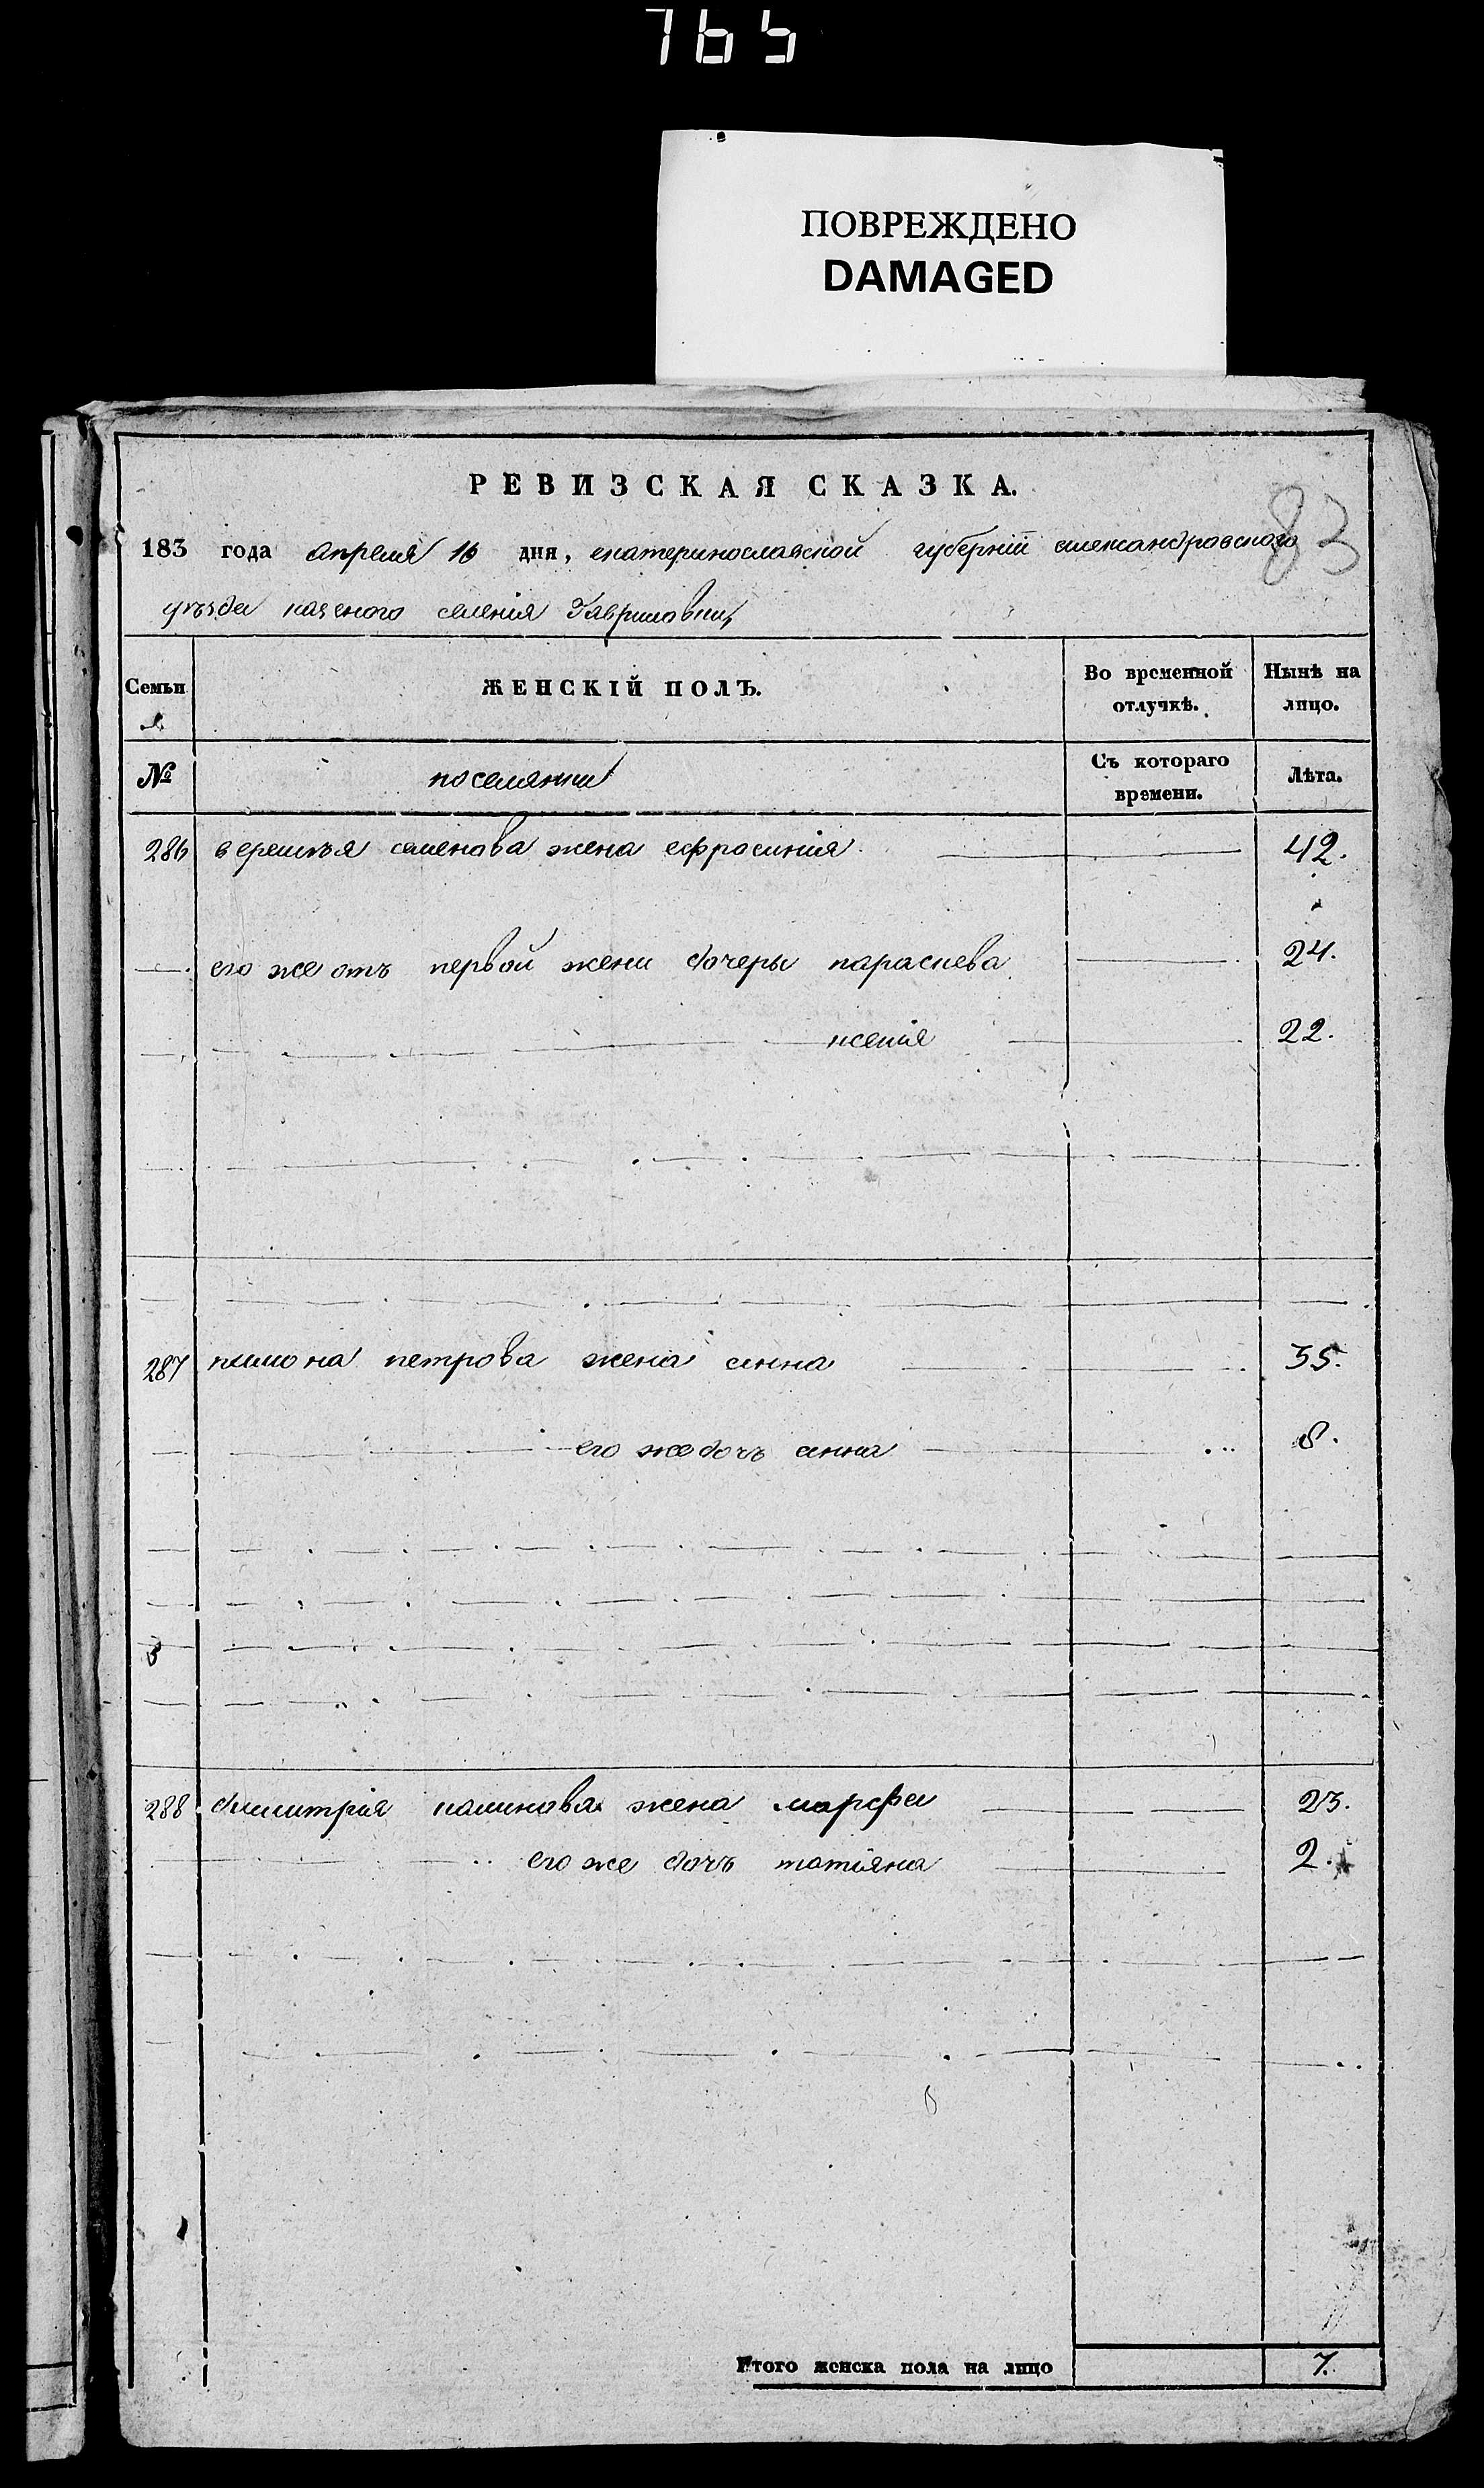 765
ПОВРЕЖДЕНО
DAMAGED
РЕВИЗСКАЯ СКАЗКА.
83
183 года апреля 16 дня, екатеринославской губерніи александровского
уезда казеного селенія Гавриловки,
Семьи
ЖЕНСКІЙ ПОЛЪ.
Во временной отлучкѣ.
Нынѣ на лицо.
№
поселянки
Съ котораго времени.
Лѣта.
286 семенова жена ефросинія 42.
его же отъ первой жени дочеры параскева 24.
ксенія 22.
287 пимона петрова жена анна 35.
его же дочъ анна 8.
288 димитрія калинова жена марфа 23.
его же дочъ татіяна 2.
Итого женска пола на лицо 7.